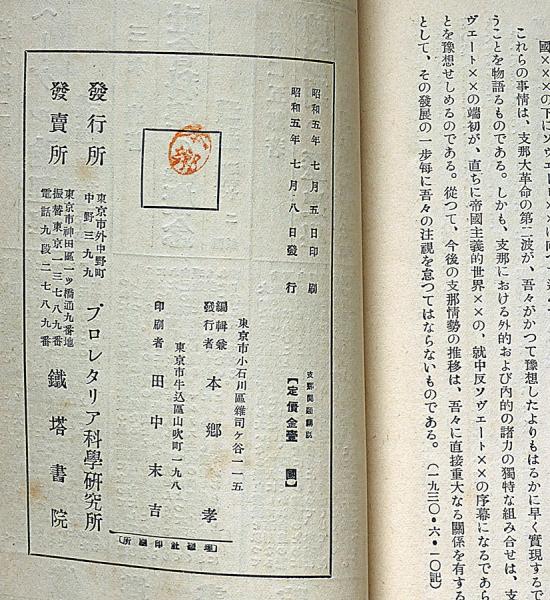 國×××の下に
これらの事情は、支那大革命の第二波が、吾々がかつて豫想したよりもはるかに早く實現するで
うことを物語るものである。しかも、支那における外的および內的の諸力の獨特な組み合せは、支
ヴェート××の端初が、直ちに帝國主義的世界××の、就中反ソヴェート××の序幕になるであら
とを豫想せしめるのである。從つて、今後の支那情勢の推移は、吾々に直接重大なる關係を有する
として、その發展の一步每に吾々の注視を怠つてはならないものである。(一九三〇・六・一〇記)
昭和五年七月五日印刷
昭和五年七月八日發行
支那問題講話
【定價金壹圓】
東京市小石川區雜司ケ谷一一五
編輯兼
發行者 本鄕 孝
東京市牛込區山吹町一九八
印刷者 田中末吉
印刷所
東京市外中野町
中野三九九
發行所 プロレタリア科學硏究所
東京市神田區一ツ橋通九番地
振替東京一三七八九番
電話九段二七八九番
發賣所 鐵塔書院